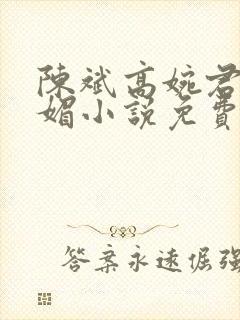 陳斌高婉君
媚小説免費
答案永遠倔強